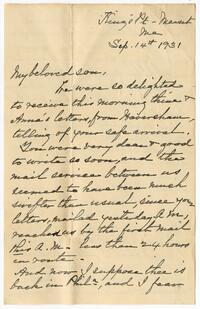 King's Pt - Manset
Me
Sep. 14th 1931
My beloved son,
We were so delighted
to receive this morning thine &
Anna's letters, from Haversham,
telling of your safe arrival.
You were very dear & good
to write so soon, and the
mail service between us
seemed to have been much
swifter than usual, since your
letters, mailed yesterday A.M.,
reached us by the first mail
this A.M. - less than 24 hours
en route -
And now I suppose thee is
back in Phila, and I fear